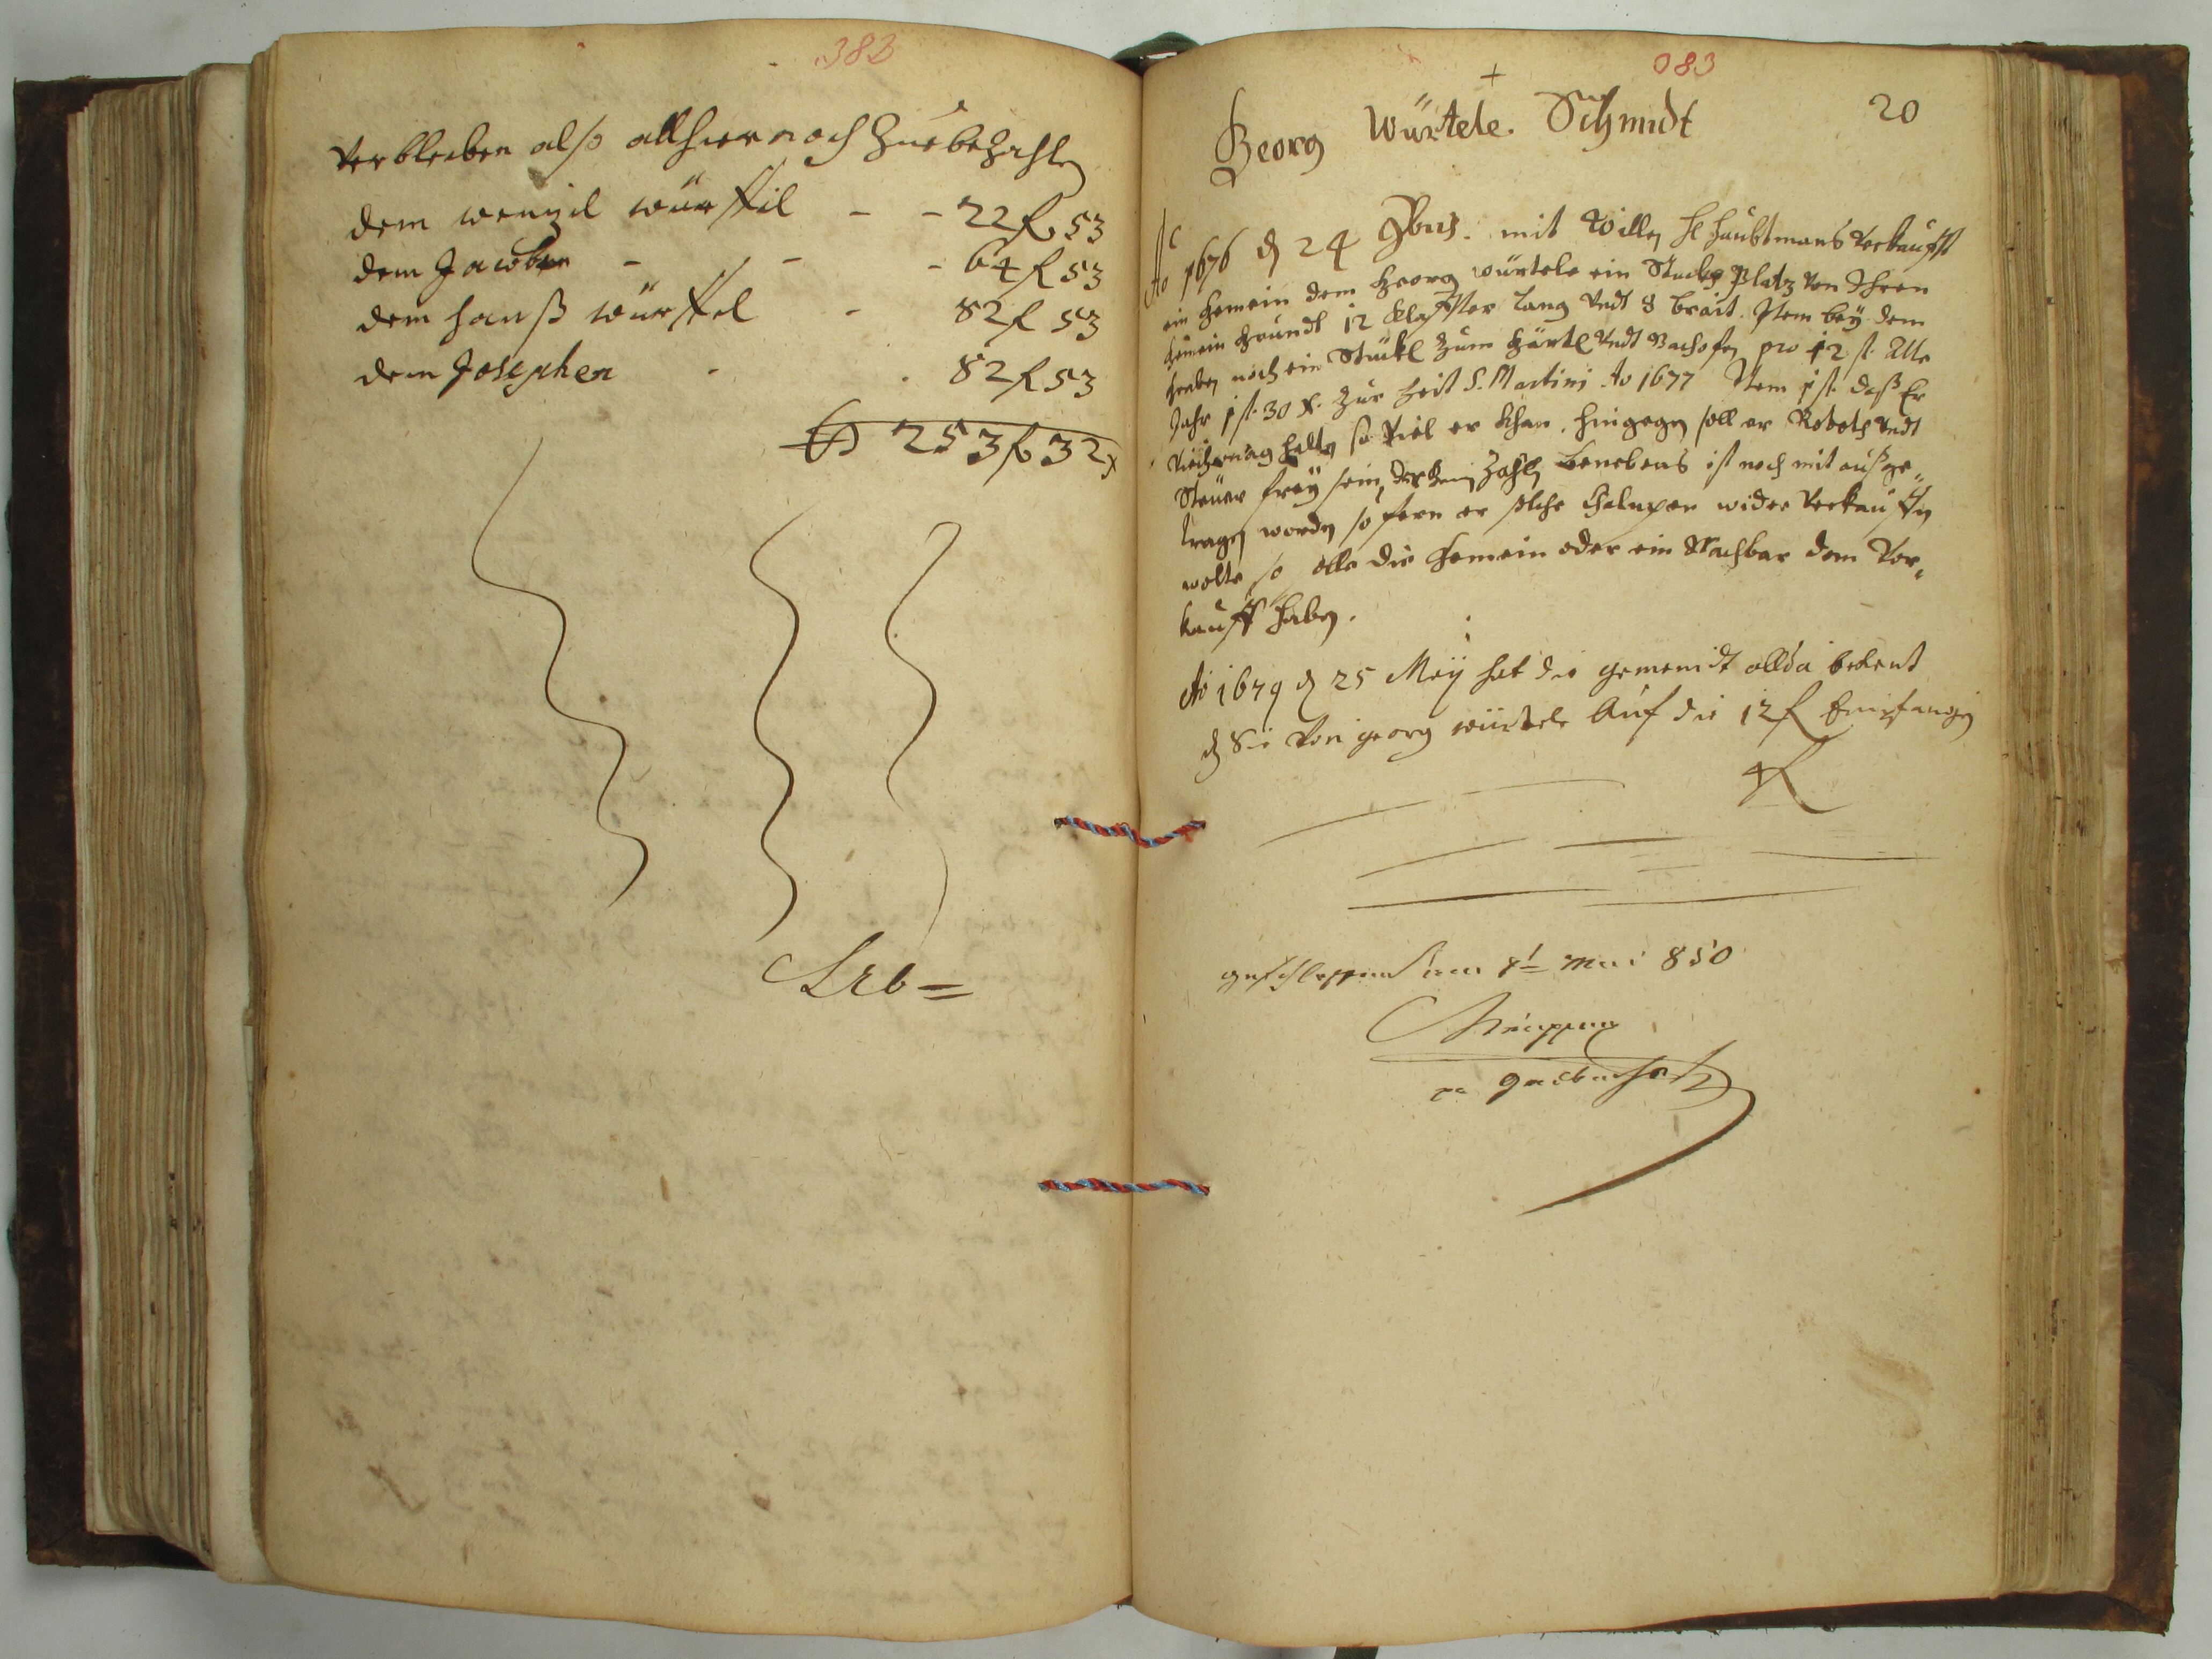 383
Verbleiben alß allhier noch zue bezahlen
dem wenzil würffil - - 22 f 53
dem Jacoben - - - 64 f 53
dem hanß würffel - 82 f 53
dem Josephen - . 82 f 53
253 f 32 x
083
20
Georg Würtele. Schmidt
Ao 1676 d 24 9bris. mit Willen H haubtmans Verkaufft
ein gemein dem Georg würtele ein Stuckh Platz von Ihren
gemein grundt 12 Klaffter lang Undt 8 brait. Item bey dem
graben noch ein Stückl zum gärtl Undt Bachofen pro 12 fl. Alle
Jahr 1 fl. 30 x. zur Zeit S. Martini Ao 1677 Item 1 fl. daß Er
Viech mag halten so Viel er khan, hingegen soll er Roboth Undt
Steuer frey sein, zahlen benebens ist noch mit außge-
tragen worden so fern er solche Chalupen wider Verkauffen
wolte so solle die Gemein oder ein Nachbar dem Vor-
kauff haben.
Ao 1679 d 25 Meÿ hat die gemeindt allda bekent
d Sie Von georg würtele Auf die 12 f Empfangen
4 f
geschlossen am 1t Mai 850